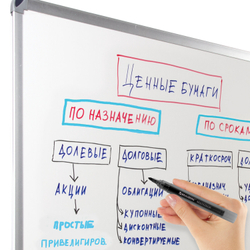 ЦЕННЫЕ БУМАГИ
ПО НАЗНАЧЕНИЮ
ПО СРОКАМ
ДОЛЕВЫЕ
ДОЛГОВЫЕ
КРАТКОСРОЧ
АКЦИИ
ОБЛИГАЦИИ
ПРОСТЫЕ
ПРИВЕЛИГИРОВ.
КУПОННЫЕ
ДИСКОНТНЫЕ
КОНВЕРТИРУЕМЫЕ